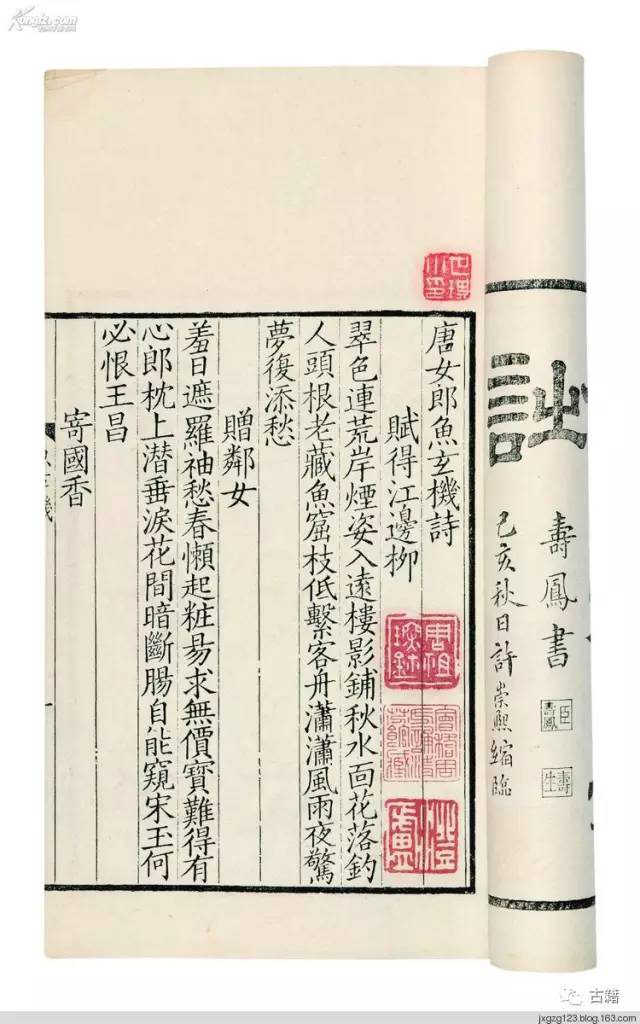 壽鳳書
臣壽鳳
己亥秋日許崇熙縮臨
唐女郎魚玄機詩
賦得江邊栁
翠色連荒岸煙姿入遠樓影鋪秋水面花落釣
人頭根老藏魚窟枝低繫客舟瀟瀟風雨夜驚
夢復添愁
贈鄰女
羞日遮羅袖愁春懶起粧易求無價寶難得有
心郎枕上潛垂淚花間暗斷腸自能窺宋玉何
必恨王昌
寄國香
古籍
jxgzg123.blog.163.com